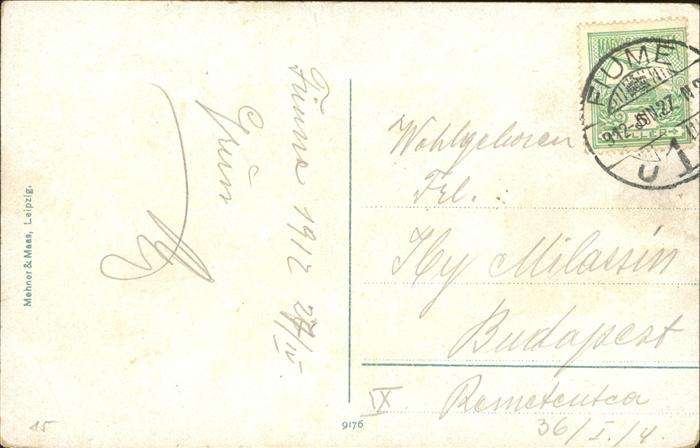 Fiume 1912 27/IV.
Grün
Wohlgeboren
Frl.:
Ily Milassin
Budapest
IX Remeteutca
36/I./4.
FIUME
912
27
1
Mehner & Maas, Leipzig.
9176
15